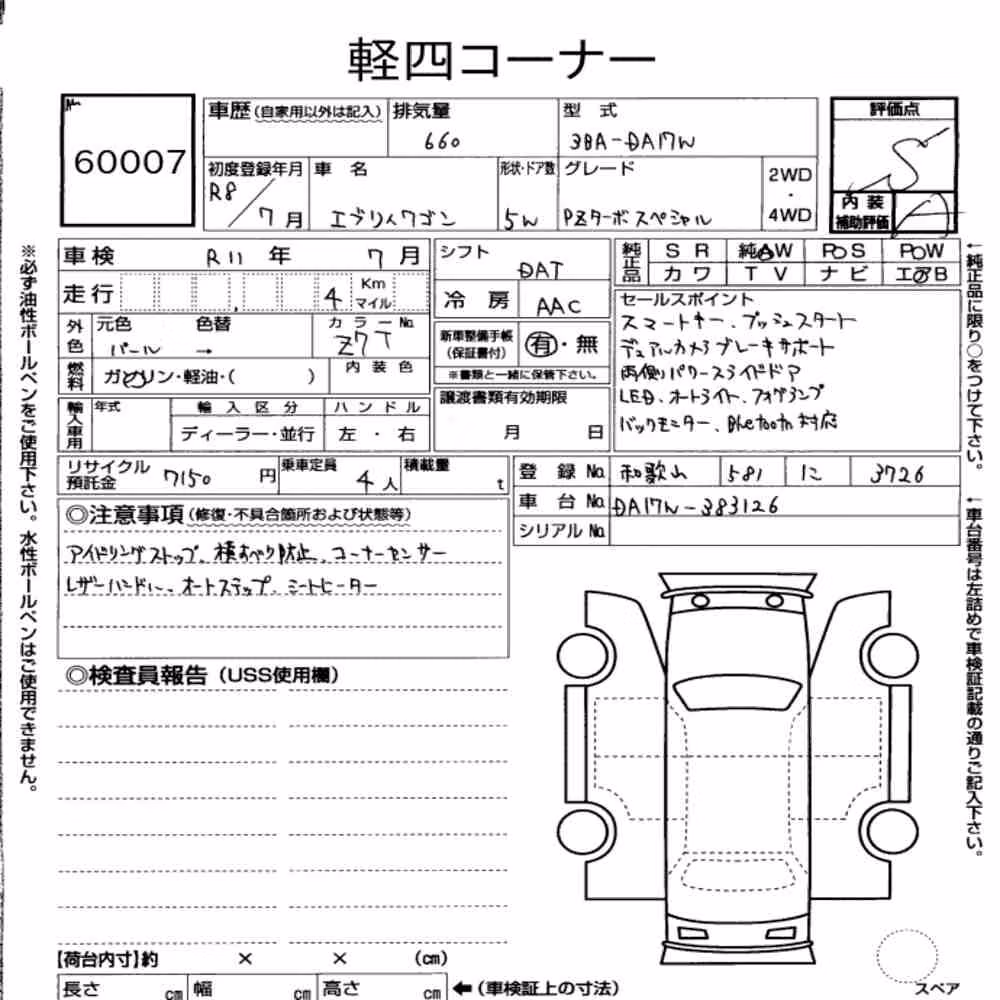 軽四コーナー
No.
60007
車歴(自家用以外は記入)
排気量
660
型 式
3BA-DA17W
評価点
S
初度登録年月
R8/7月
車 名
エブリイワゴン
形状・ドア数
5W
グレード
PZターボスペシャル
2WD
・
4WD
内 装
補助評価
A
車 検 R11 年 7 月
走行 4 Km マイル
外色 元色 色替
パール →
カラーNo.
Z7T
燃料 ガソリン・軽油・( )
内 装 色
輸入車用 年式
輸 入 区 分
ディーラー・並行
ハ ン ド ル
左 ・ 右
シフト
DAT
冷 房
AAC
新車整備手帳
(保証書付)
有・無
※書類と一緒に保管下さい。
譲渡書類有効期限
月 日
純正品
S R 純AW P S P W
カ ワ T V ナ ビ エアB
セールスポイント
スマートキー、プッシュスタート
デュアルカメラブレーキサポート
両側パワースライドドア
LED、オートライト、フォグランプ
バックモニター、Bluetooth対応
リサイクル
預託金
7150 円
乗車定員
4 人
積載量
t
登 録 No. 和歌山 581 に 3726
車 台 No. DA17W-383126
シリアル No.
◎注意事項(修復・不具合箇所および状態等)
アイドリングストップ、横すべり防止、コーナーセンサー
レザーハンドル、オートステップ、シートヒーター
◎検査員報告(USS使用欄)
【荷台内寸】約 × × (cm)
長さ cm 幅 cm 高さ cm ←(車検証上の寸法)
スペア
※必ず油性ボールペンをご使用下さい。水性ボールペンはご使用できません。
←純正品に限り○をつけて下さい。
←車台番号は左詰めで車検証記載の通りご記入下さい。